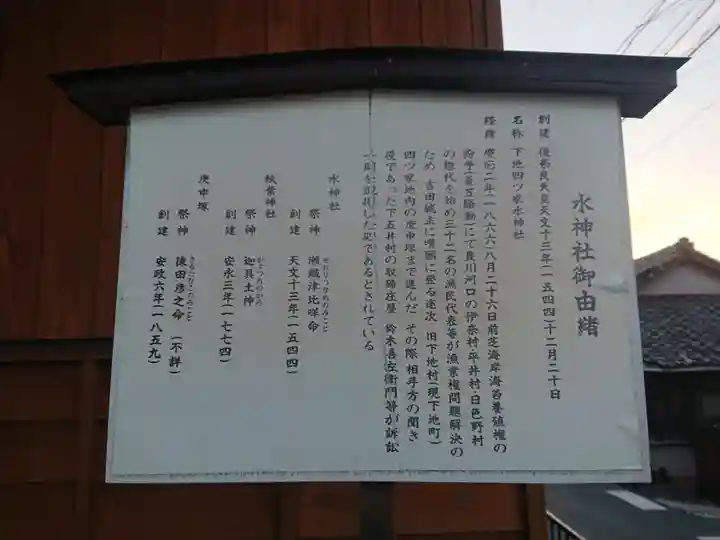 水神社御由緒
創建 後奈良天皇天文十三年(一五四四)十二月二十日
名称 下地四ツ家水神社
経緯 慶応二年(一八六六)八月二十六日前芝海岸海苔養殖権の
紛争(簀笠騒動)にて豊川河口の伊奈村・平井村・日色野村
の総代を始め三十二名の漁民代表等が漁業権問題解決の
ため 吉田城主に嘆願に登る途次 旧下地村(現下地町)
四ツ家地内の庚申塚まで進んだ その際 相手方の聞き
役であった下五井村の取締庄屋 鈴木喜左衛門等が訴訟
一同を説得した処であるとされている
水神社
祭神 瀬織津比咩命
せおりつひめのみこと
創建 天文十三年(一五四四)
秋葉神社
祭神 迦具土神
かぐつちのかみ
創建 安永三年(一七七四)
庚申塚
祭神 猿田彦之命 (不詳)
さるたひこのみこと
創建 安政六年(一八五九)